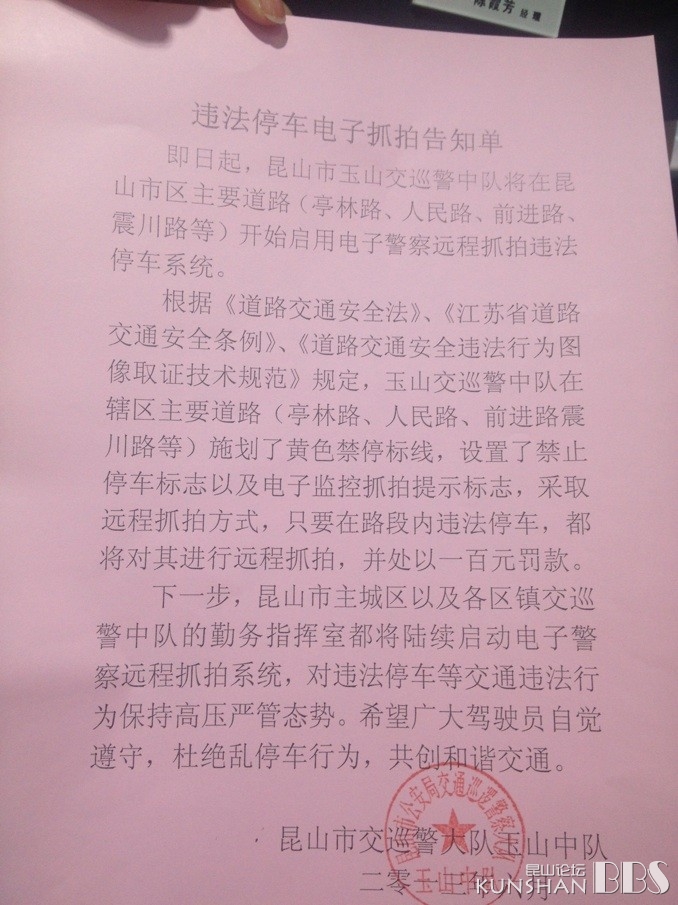 陈霞芳 经理
违法停车电子抓拍告知单
即日起，昆山市玉山交巡警中队将在昆
山市区主要道路（亭林路、人民路、前进路、
震川路等）开始启用电子警察远程抓拍违法
停车系统。
根据《道路交通安全法》、《江苏省道路
交通安全条例》、《道路交通安全违法行为图
像取证技术规范》规定，玉山交巡警中队在
辖区主要道路（亭林路、人民路、前进路震
川路等）施划了黄色禁停标线，设置了禁止
停车标志以及电子监控抓拍提示标志，采取
远程抓拍方式，只要在路段内违法停车，都
将对其进行远程抓拍，并处以一百元罚款。
下一步，昆山市主城区以及各区镇交巡
警中队的勤务指挥室都将陆续启动电子警
察远程抓拍系统，对违法停车等交通违法行
为保持高压严管态势。希望广大驾驶员自觉
遵守，杜绝乱停车行为，共创和谐交通。
昆山市公安局交通巡逻警察大队
玉山中队
昆山市交巡警大队玉山中队
二零一 年 月
昆山论坛
KUNSHAN BBS